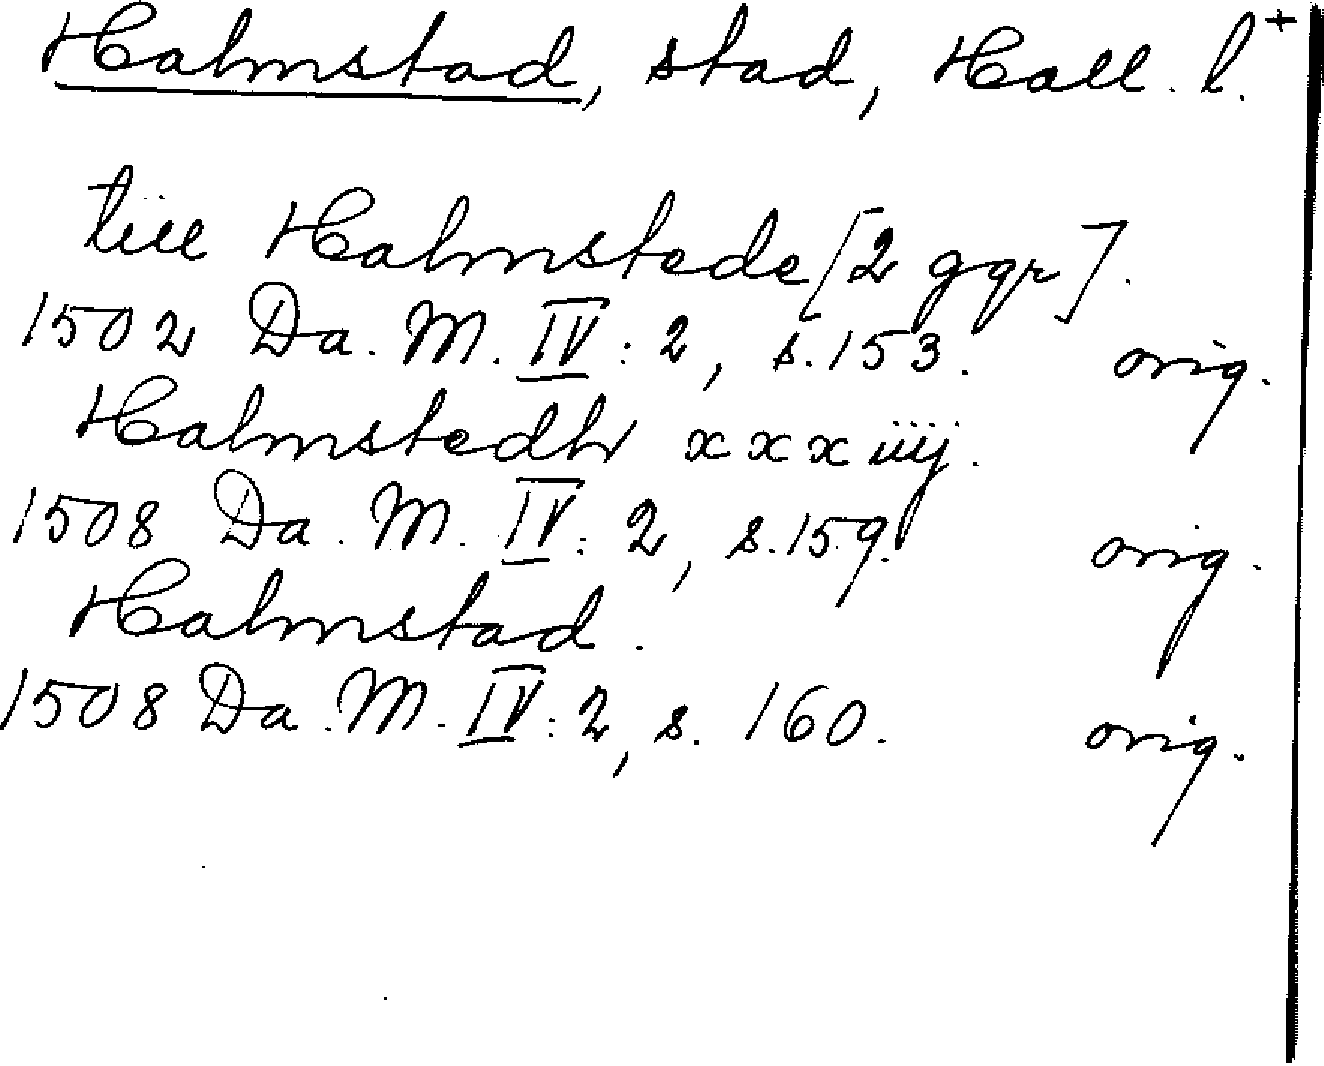 Halmstad, stad, Hall. l. +
till Halmstede [2 ggr].
1502 Da. M. IV: 2, s. 153. orig.
Halmstedh xxxiiij.
1508 Da. M. IV: 2, s. 159. orig.
Halmstad.
1508 Da. M. IV: 2, s. 160. orig.